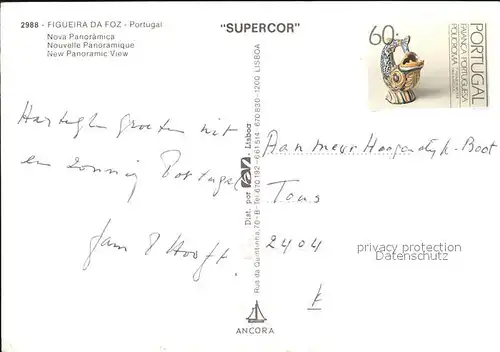 2988 - FIGUEIRA DA FOZ - Portugal
Nova Panorâmica
Nouvelle Panoramique
New Panoramic View
"SUPERCOR"
60
PORTUGAL
FAIANÇA PORTUGUESA
POLICROMIA
Hartelyke groeten uit
een zonnig Portugal
fam 't Hooft.
Dist. por
- Lisboa
Rua da Quintinha, 70-B - Tel 670192 - 661514 670830 - 1200 LISBOA
ANCORA
Aan mevr Hoogendijk-Boot
Tons
2404
privacy protection
Datenschutz